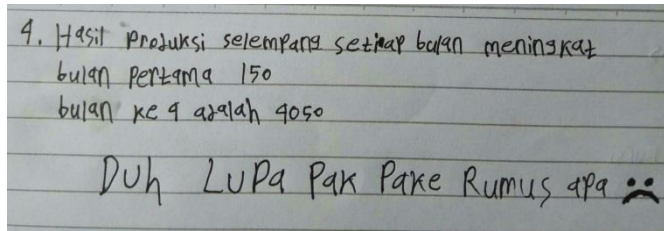 4. Hasil Produksi selempang setiap bulan meningkat
bulan Pertama 150
bulan ke 4 adalah 4050
Duh Lupa Pak Pake Rumus apa